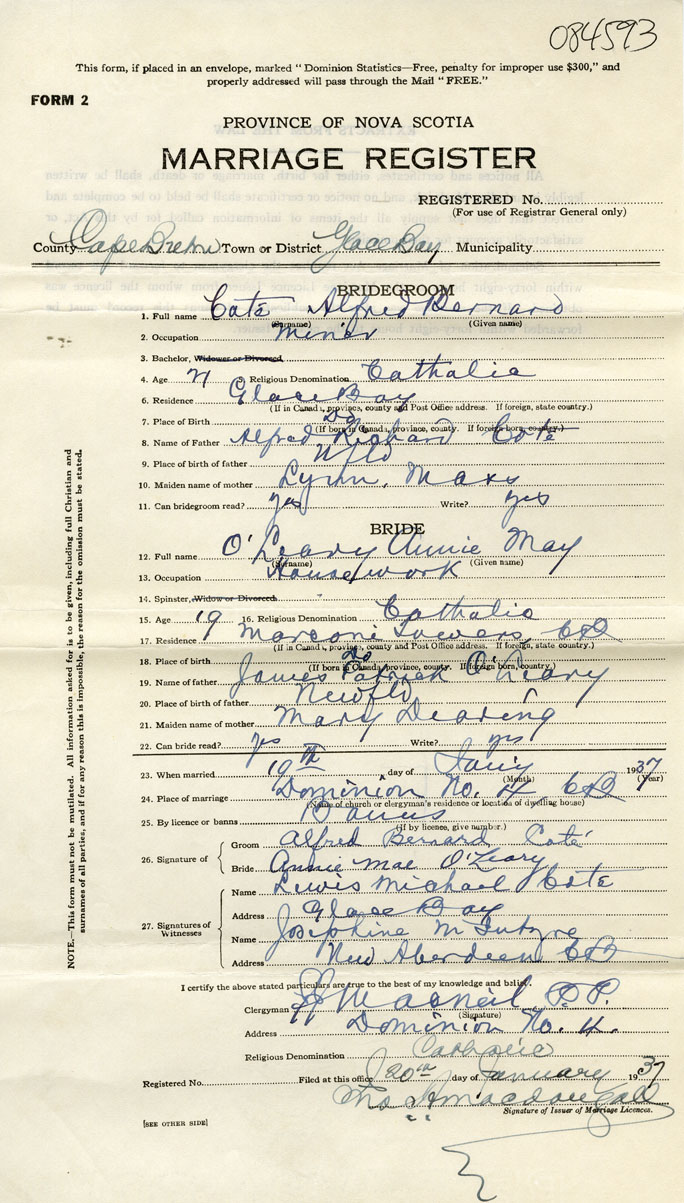 084593
This form, if placed in an envelope, marked "Dominion Statistics—Free, penalty for improper use $300," and
properly addressed will pass through the Mail "FREE."
FORM 2
PROVINCE OF NOVA SCOTIA
MARRIAGE REGISTER
REGISTERED No.
(For use of Registrar General only)
County Cape Breton Town or District Glace Bay Municipality
BRIDEGROOM
1. Full name Coté Alfred Bernard
(Surname) (Given name)
2. Occupation miner
3. Bachelor, Widower or Divorced
4. Age 21 5. Religious Denomination Catholic
6. Residence Glace Bay
(If in Canada, province, county and Post Office address. If foreign, state country.)
7. Place of Birth Do
(If born in Canada, province, county. If foreign born, country.)
8. Name of Father Alfred Richard Coté
9. Place of birth of father Nfld
10. Maiden name of mother Lynn, Mary
11. Can bridegroom read? yes Write? yes
BRIDE
12. Full name O'Leary Annie May
(Surname) (Given name)
13. Occupation Housework
14. Spinster, Widow or Divorced
15. Age 19 16. Religious Denomination Catholic
17. Residence Marconi Towers, CB
(If in Canada, province, county and Post Office address. If foreign, state country.)
18. Place of birth Do
(If born in Canada, province, county. If foreign born, country.)
19. Name of father James Patrick O'Leary
20. Place of birth of father Newfld
21. Maiden name of mother Mary Dearing
22. Can bride read? yes Write? yes
23. When married 19th day of Jany 1937
(Month) (Year)
24. Place of marriage Dominion No. 4 CB
(Name of church or clergyman's residence or location of dwelling house)
25. By licence or banns Banns
(If by licence, give number.)
26. Signature of
Groom Alfred Bernard Coté
Bride Annie Mae O'Leary
27. Signatures of Witnesses
Name Lewis Michael Cote
Address Glace Bay
Name Josephine McIntyre
Address New Aberdeen CB
I certify the above stated particulars are true to the best of my knowledge and belief.
Clergyman MacNeil P.P.
(Signature)
Address Dominion No. 4.
Religious Denomination Catholic
Registered No. Filed at this office 20th day of January 1937
Macdougall
Signature of Issuer of Marriage Licences.
[SEE OTHER SIDE]
NOTE.—This form must not be mutilated. All information asked for is to be given, including full Christian and
surnames of all parties, and if for any reason this is impossible, the reason for the omission must be stated.